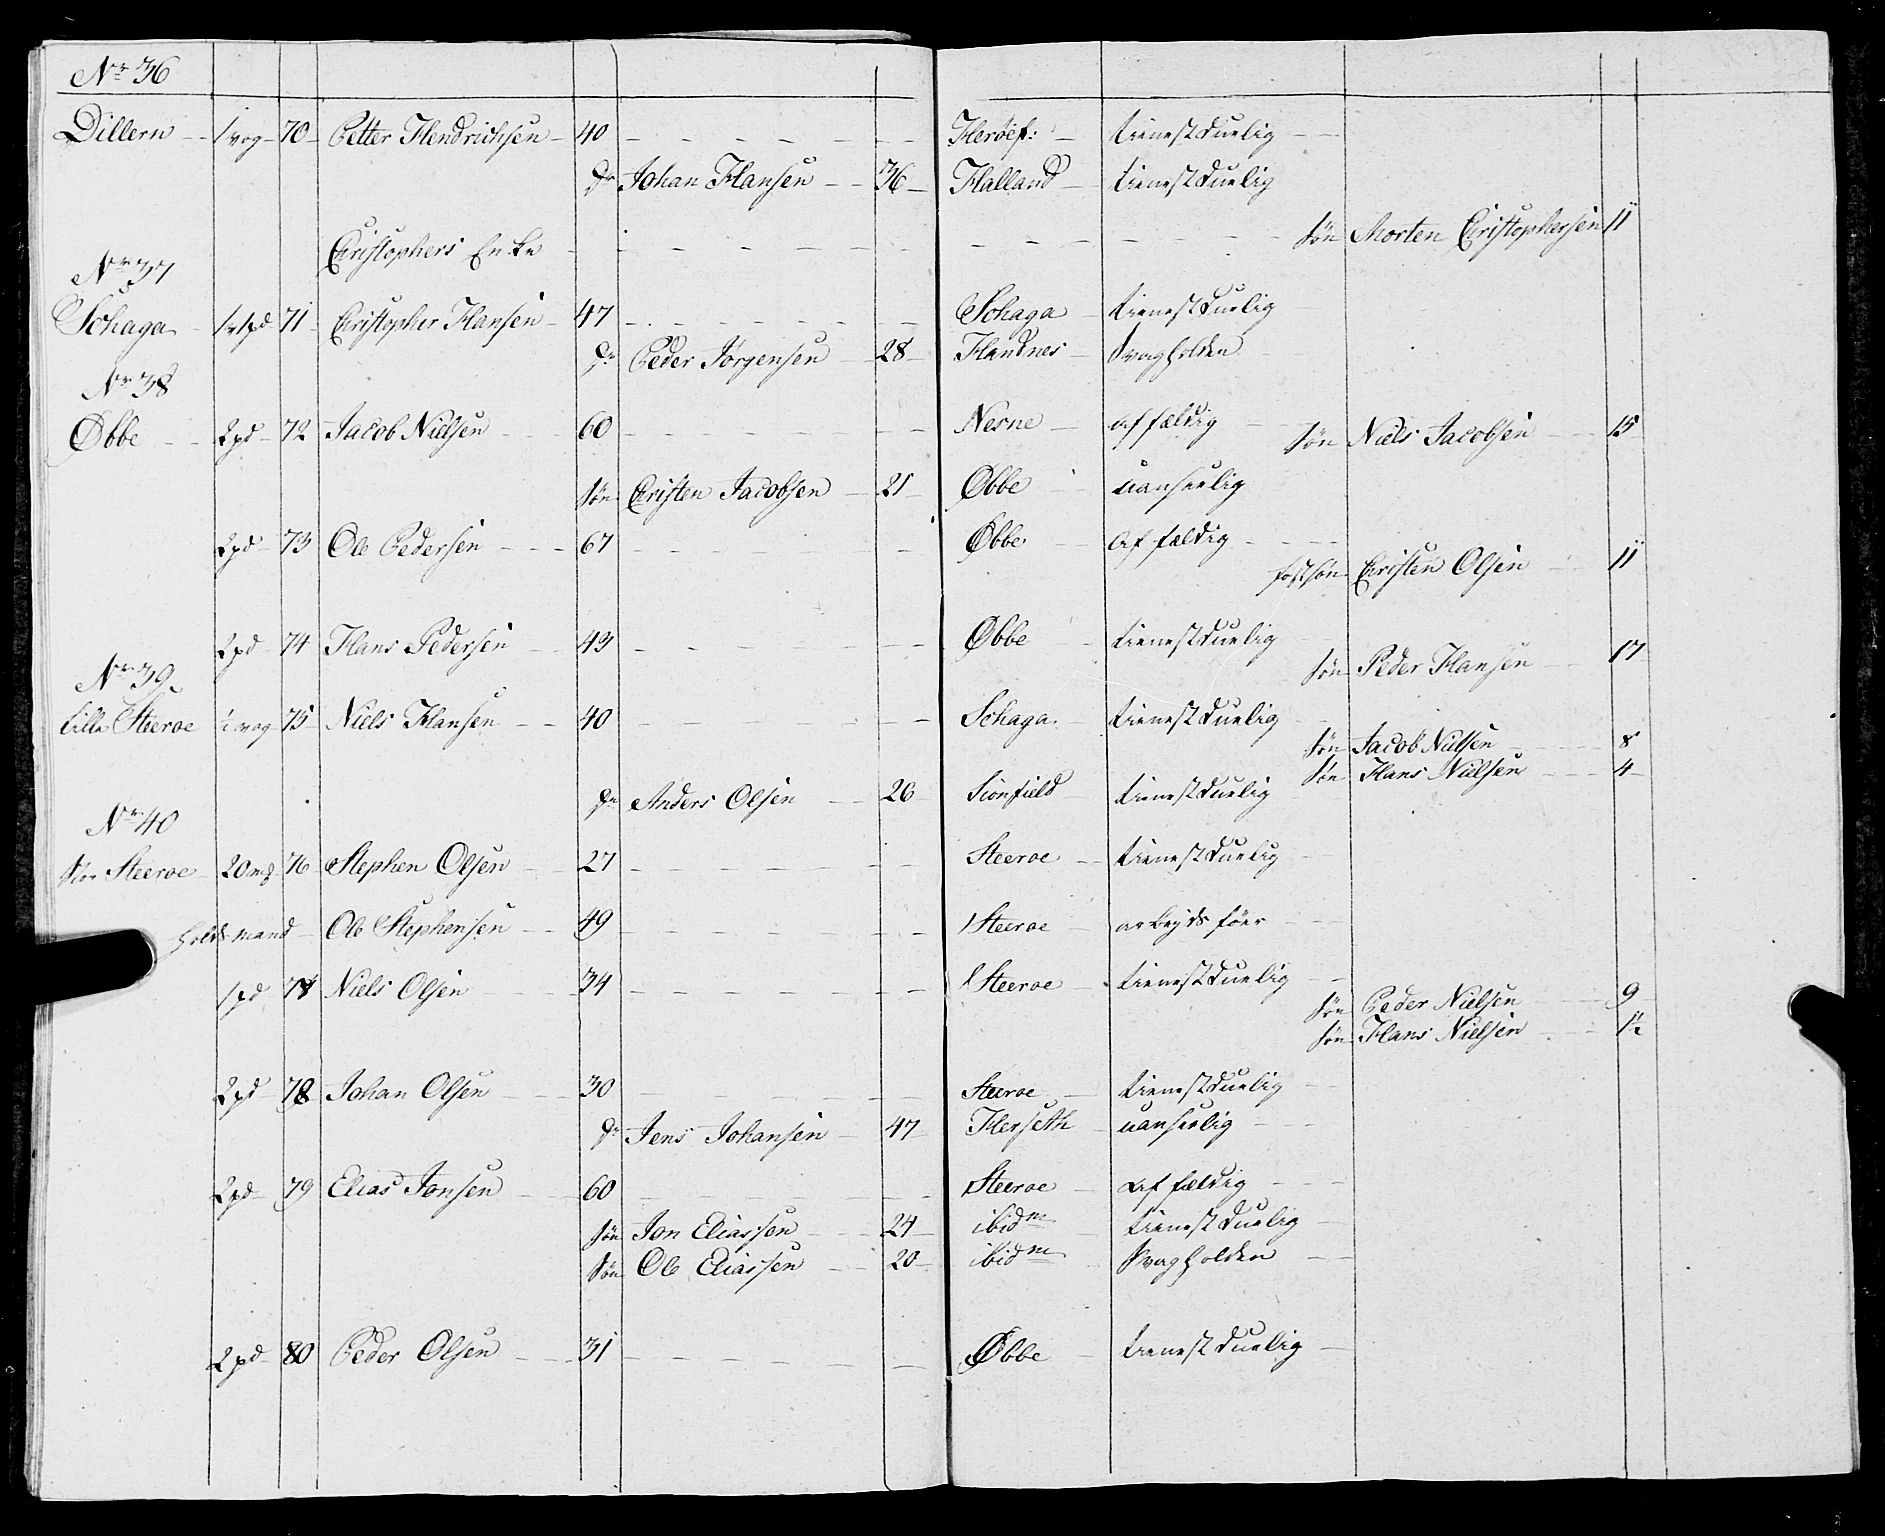 Nr 36
Dillern 1 vog 70 Petter Hendrichsen 40 Herøef: tienestduelig
Dr Johan Hansen 36 Halland tienestduelig
Christophers Enke søn Morten Christophersen 11
Nr 37
Schaga 71 Christopher Hansen 47 Schaga tienestduelig
Dr Peder Jørgensen 28 Handnes Svagholden
Nr 38
Øbbe 2 pd 72 Jacob Nielsen 60 Nesne affældig søn Niels Jacobsen 15
søn Christen Jacobsen 21 Øbbe uanseelig
2 pd 73 Ole Pedersen 67 Øbbe affældig
fostsøn Christen Olsen 11
2 pd 74 Hans Pedersen 43 Øbbe tienestduelig
søn Peder Hansen 17
Nr 39
Lille Steeroe 1 vog 75 Niels Hansen 40 Schaga tienestduelig
søn Jacob Nielsen 8
søn Hans Nielsen 4
Dr Anders Olsen 26 Sionfield tienestduelig
Nr 40
Stor Steeroe 20 mk 76 Stephen Olsen 27 Steeroe tienestduelig
Holdsmand Ole Stephensen 49 Steeroe arbeyds føer
1 pd 77 Niels Olsen 34 Steeroe tienestduelig
søn Peder Nielsen 9
søn Hans Nielsen 1/2
2 pd 78 Johan Olsen 30 Steeroe tienestduelig
Dr Jens Johansen 47 Herseth uanseelig
2 pd 79 Elias Jonsen 60 Steeroe affældig
søn Jon Eliassen 24 ibidm tienestduelig
søn Ole Eliassen 20 ibidm Svagholden
2 pd 80 Peder Olsen 31 Øbbe tienestduelig